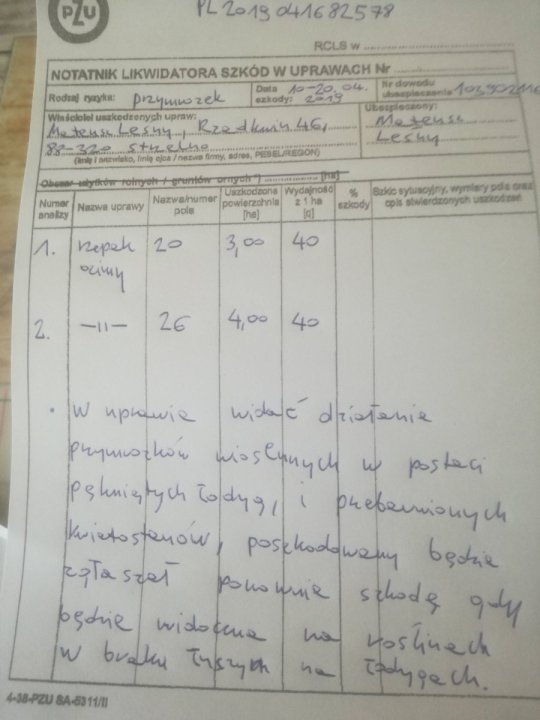 PZU
PL2019041682578
RCLS w
NOTATNIK LIKWIDATORA SZKÓD W UPRAWACH Nr
Rodzaj ryzyka: przymrozek
Data szkody: 10-20.04. 2019
Nr dowodu ubezpieczenia
Właściciel uszkodzonych upraw:
Mateusz Leśny, Rzadkwin 46,
88-320 Strzelno
(imię i nazwisko, imię ojca / nazwa firmy, adres, PESEL/REGON)
Ubezpieczony:
Mateusz
Leśny
Obszar użytków rolnych / gruntów ornych *) [ha]
Numer analizy
Nazwa uprawy
Nazwa/numer pola
Uszkodzona powierzchnia [ha]
Wydajność z 1 ha [q]
% szkody
Szkic sytuacyjny, wymiary pola oraz opis stwierdzonych uszkodzeń
1. rzepak ozimy 20 3,00 40
2. —II— 26 4,00 40
• W uprawie widać działanie
przymrozków wiosennych w postaci
pękniętych łodyg, i przebarwionych
kwiatostanów, poszkodowany będzie
zgłaszał ponownie szkodę gdy
będzie widoczna na roślinach
w braku łuszczyn na łodygach.
4-38-PZU SA-5311/II